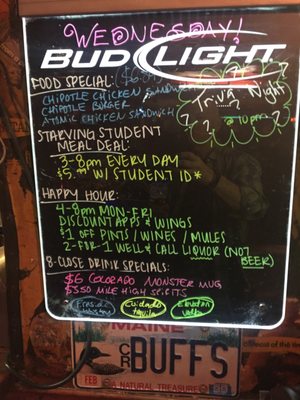 WEDNESDAY!
BUD LIGHT
FOOD SPECIAL:
CHIPOTLE CHICKEN SANDWICH
CHIPOTLE BURGER
ATOMIC CHICKEN SANDWICH
Trivia Night
@ 10pm
STARVING STUDENT
MEAL DEAL:
3-8pm EVERY DAY
W/ STUDENT ID*
HAPPY HOUR:
4-8pm MON-FRI
DISCOUNT APPS & WINGS
$1 OFF PINTS/WINES/MULES
2-FOR-1 WELL & CALL LIQUOR (NOT BEER)
8-CLOSE DRINK SPECIALS:
$6 COLORADO MONSTER MUG
$3.50 MILE HIGH SPIRITS
Fireside Whiskey
Cuidado Tequila
Elevation Vodka
MAINE
CR BUFFS
FEB
A NATURAL TREASURE